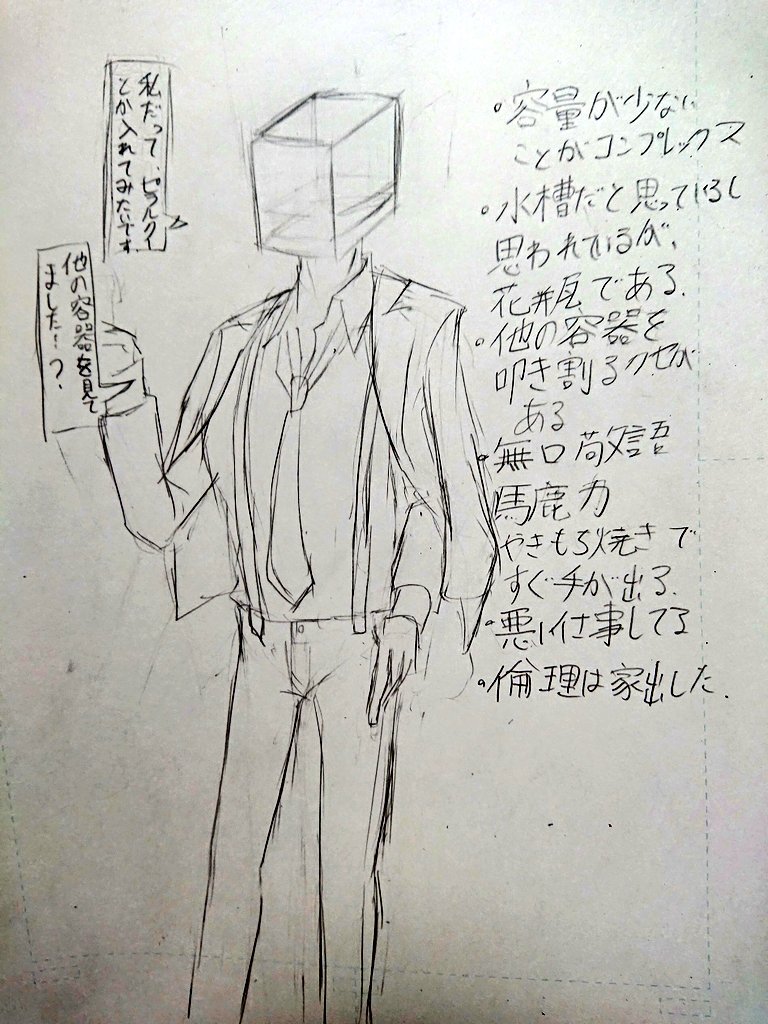 私だって、ピラルクー
とか入れてみたいです。
他の容器を見て
ました…?
・容量が少ない
ことがコンプレックス
・水槽だと思っているし
思われているが、
花瓶である.
・他の容器を
叩き割るクセが
ある
・無口敬語
馬鹿力
やきもち焼きで
すぐ手が出る.
・悪い仕事してる
・倫理は家出した.